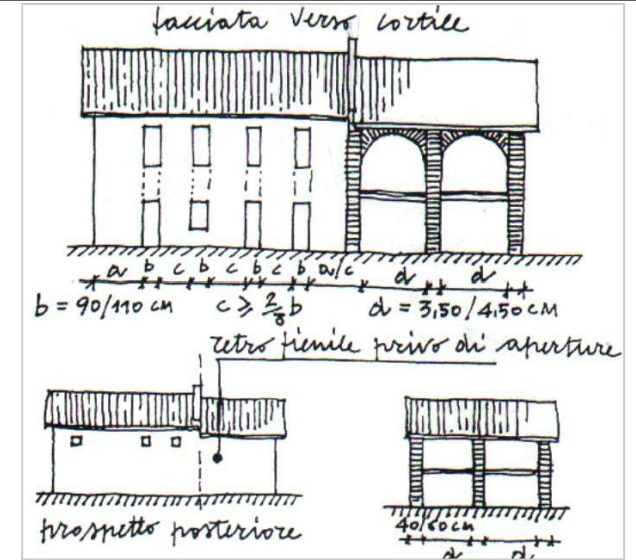 facciata verso cortile
a b c b c b c b a/c d d
b = 90/110 cm c ⩾ 2/3 b d = 3,50/4,50 cm
retro fienile privo di aperture
40/60 cm
prospetto posteriore
d d